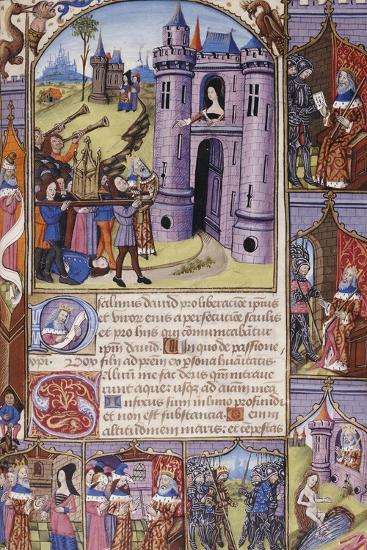 psalmus david pro liberacione ipius
et uxor enis a persecucione saulis
et pro hiis qui conmunicabatur
cum david In quo de passione
xpi
filii ad prem et psona humanitatis
Salvum me fac deus qm intrave
runt aque usq ad aiam mea
Infixus sum in limo profundi
et non est substancia Veni in
altitudinem maris et tempestas